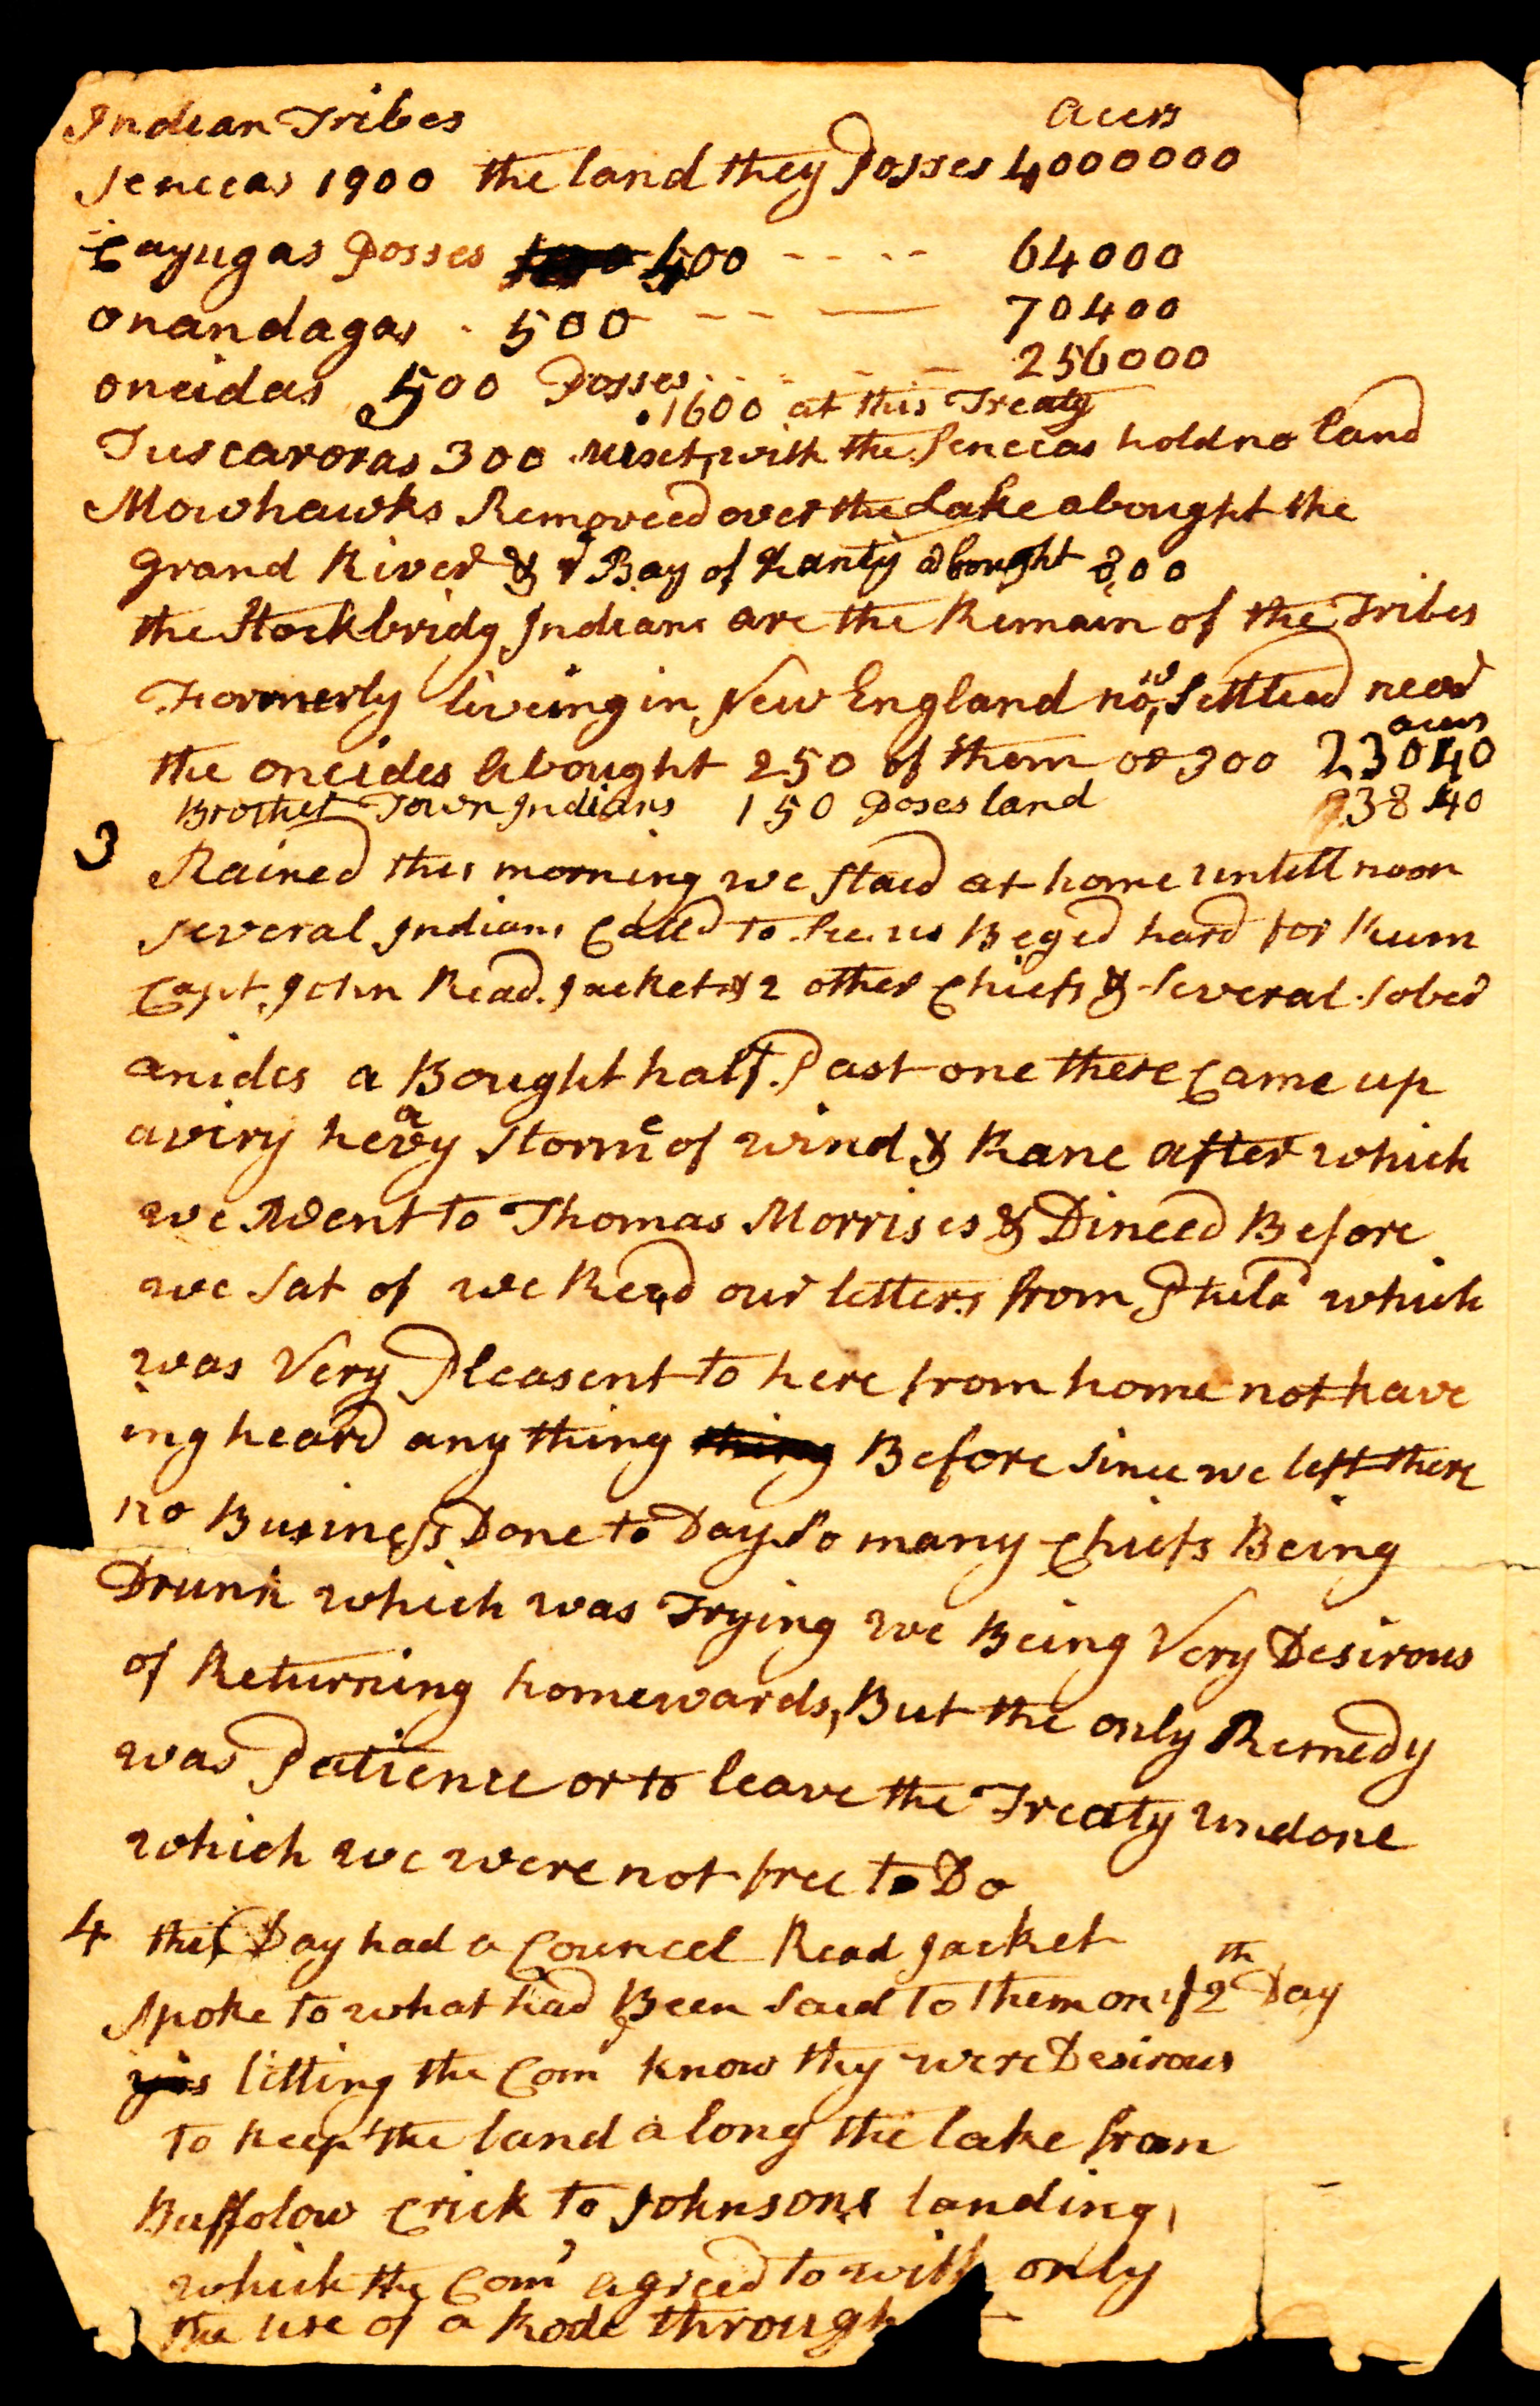 Indian Tribes acers
Senecas 1900 the land they Posses 4000000
Cayugas Posses 500 ---- 64000
onandagas . 500 --- 70400
oneidas 500 Posses - - - 256000
1600 at this Treaty
Tuscaroras 300 mixet with the Senecas hold no land
Mowhawks Removeed over the Lake abought the
grand River & Bay of Kanty abought 800
the Stockbridg Indians are the Remain of the Tribes
Formerly liveing in New England now Settleed near
acers
the oneides abought 250 of them or 300 23040
Brother Town Indians 150 Poses land 23840
3 Rained this morning we staid at home untill noon
several Indians Called to See us Beged hard for Rum
Capt. John Read Jacket & 2 other Chiefs & several sober
anides a Bought half Past one there Came up
a viry heavy Storme of wind & Rane after which
we Went to Thomas Morrises & Dineed Before
we Sat of we Read our letters from Phila which
was Very Pleasent to here from home not have
ing heard any thing thing Before Since we left there
no Business Done to Day So many Chiefs Being
Drunk which was Trying we Being Very Desirous
of Returning homewards, But the only Remedy
was Patience or to leave the Treaty undone
which we were not free to Do
4 this Day had a Councel Read Jacket
Spoke to what had Been Said to them on 2th Day
letting the Com know they were Desirous
to keep the land along the lake from
Buffolow Crick to Johnsons landing,
which the Com agreed to with only
the use of a Rode through